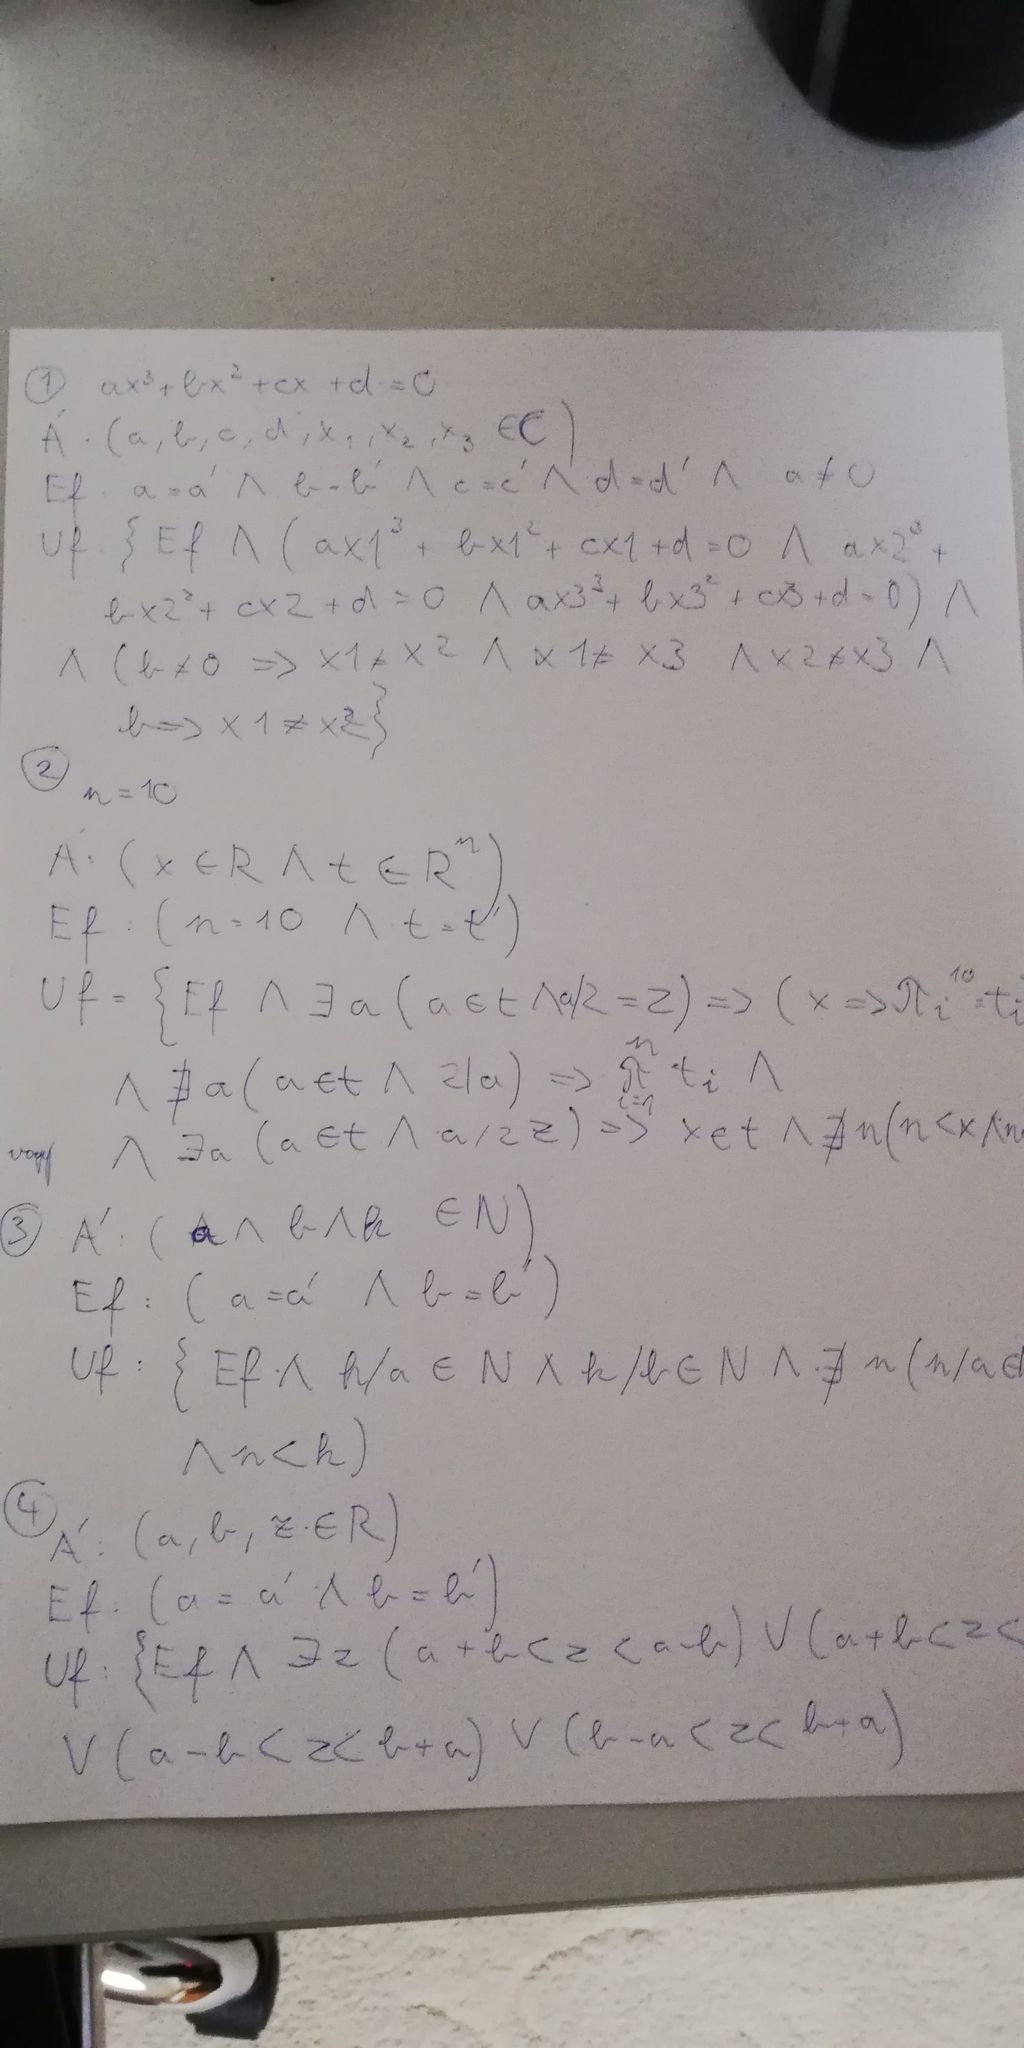 ① ax³+bx²+cx+d=0
Á: (a,b,c,d,x₁,x₂,x₃ ∈ ℂ)
Ef: a=a' ∧ b=b' ∧ c=c' ∧ d=d' ∧ a≠0
Uf: {Ef ∧ (ax1³+bx1²+cx1+d=0 ∧ ax2³+
bx2²+cx2+d=0 ∧ ax3³+bx3²+cx3+d=0) ∧
∧ (b≠0 => x1≠x2 ∧ x1≠x3 ∧ x2≠x3 ∧
b=> x1≠x2}
② n=10
Á: (x ∈ R ∧ t ∈ Rⁿ)
Ef: (n=10 ∧ t=t')
Uf= {Ef ∧ ∃a(a∈t ∧ a/2=z) => (x => πi¹⁰=ti
∧ ∄a(a∈t ∧ 2|a) => π i=1 n ti ∧
∧ ∃a(a∈t ∧ a/2 z) => x∈t ∧ ∄n(n<x∧n
③ Á: (a∧b∧k ∈ N)
Ef: (a=a' ∧ b=b')
Uf: {Ef ∧ k/a ∈ N ∧ k/b ∈ N ∧ ∄n(n/a∈
∧n<k)
④ Á: (a,b,z ∈ R)
Ef: (a=a' ∧ b=b')
Uf: {Ef ∧ ∃z(a+b<z<a-b) ∨ (a+b<z<
∨ (a-b<z<b+a) ∨ (b-a<z<b+a)